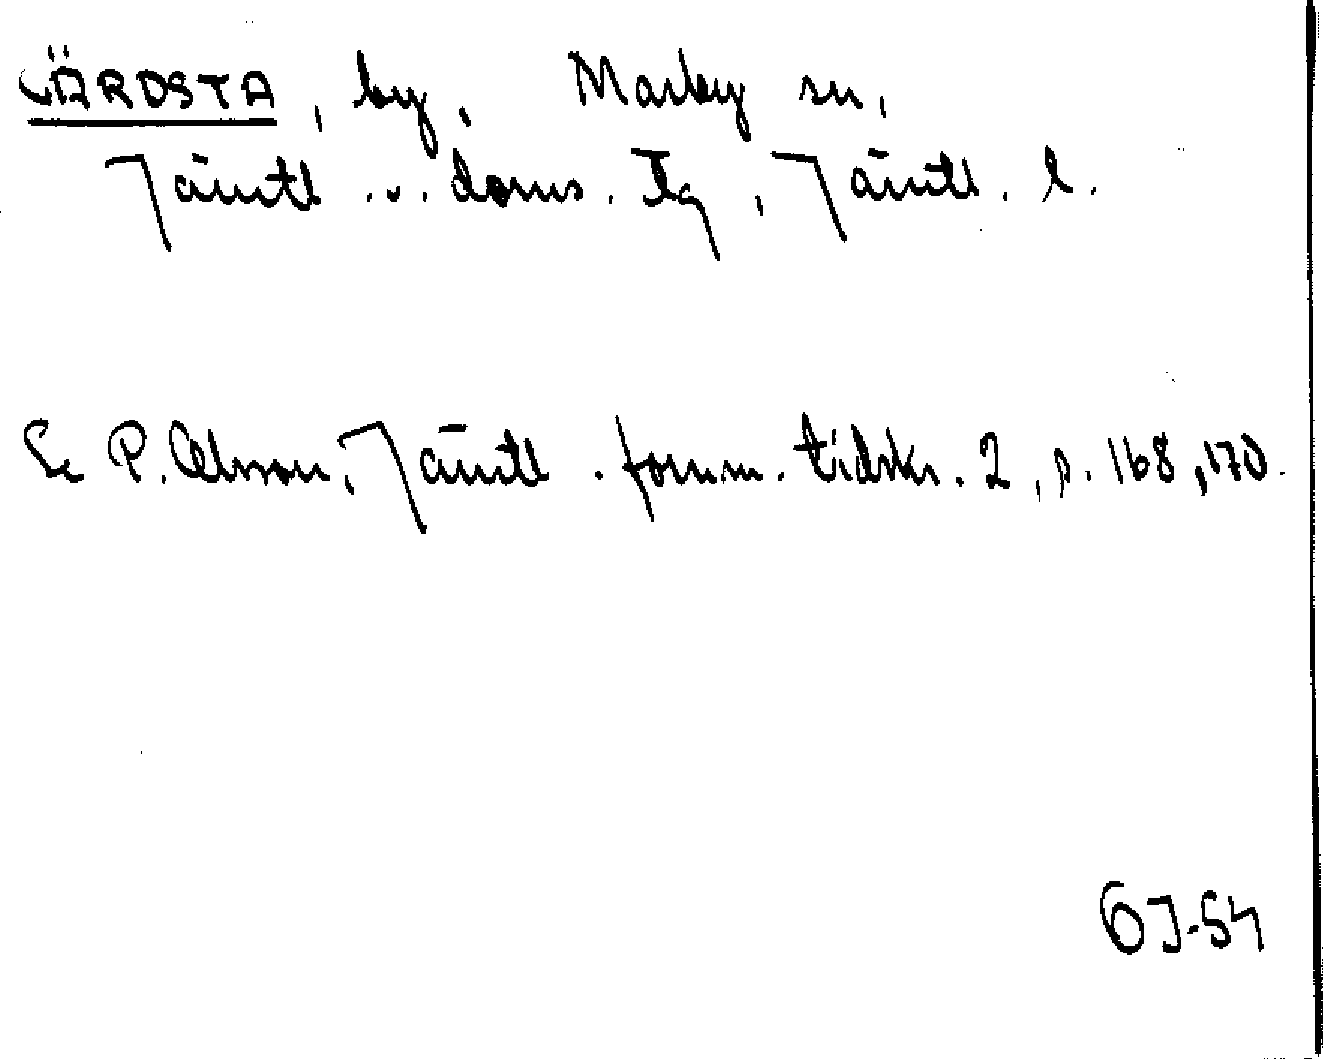 VÄRDSTA, by, Marby sn,
Jämtl. v. doms. Tg, Jämtl. l.
Se P. Olsson, Jämtl. fornm. tidskr. 2, p. 168, 170.
GJ-54